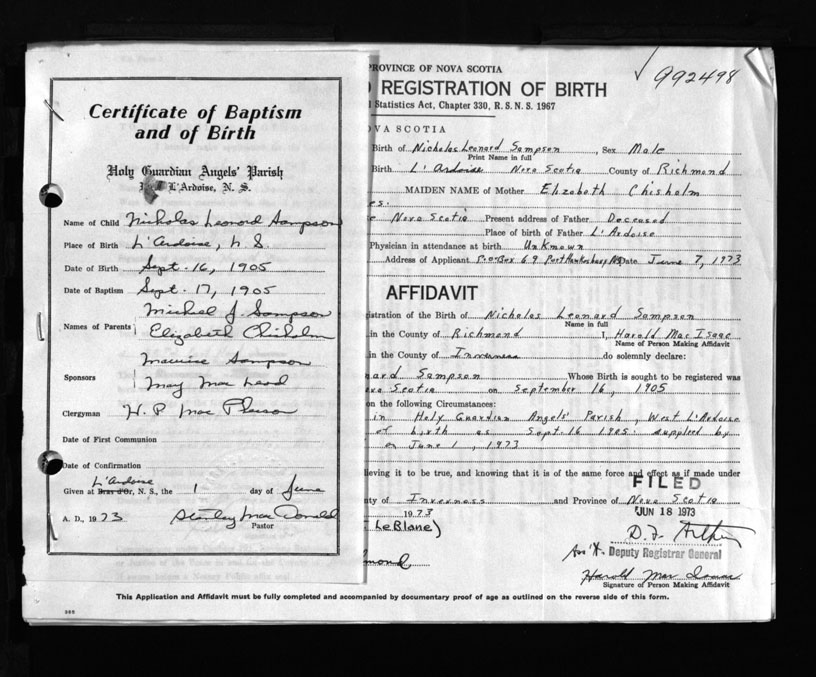 Certificate of Baptism
and of Birth
Holy Guardian Angels' Parish
L'Ardoise, N. S.
Name of Child Nicholas Leonard Sampson
Place of Birth L'Ardoise, N S.
Date of Birth Sept. 16, 1905
Date of Baptism Sept. 17, 1905
Names of Parents Michael J. Sampson
Elizabeth Chisholm
Sponsors Maurice Sampson
May Mac Leod
Clergyman W. P. Mac Pherson
Date of First Communion
Date of Confirmation
L'Ardoise
Given at Bras d'Or, N. S., the 1 day of June
A. D., 1973 Stanley Mac Donald
Pastor
PROVINCE OF NOVA SCOTIA
992498
REGISTRATION OF BIRTH
Statistics Act, Chapter 330, R. S. N. S. 1967
OVA SCOTIA
Birth of Nicholas Leonard Sampson, Sex Male
Print Name in full
Birth L'Ardoise Nova Scotia County of Richmond
MAIDEN NAME of Mother Elizabeth Chisholm
es.
e Nova Scotia Present address of Father Deceased
Place of birth of Father L'Ardoise
Physician in attendance at birth UnKnown
Address of Applicant P.O. Box 69 Port Hawkesbury NS Date June 7, 1973
AFFIDAVIT
istration of the Birth of Nicholas Leonard Sampson
Name in full
in the County of Richmond I, Harold Mac Isaac
Name of Person Making Affidavit
in the County of Inverness do solemnly declare:
nard Sampson Whose Birth is sought to be registered was
ova Scotia on September 16, 1905
on the following Circumstances:
in Holy Guardian Angels' Parish, West L'Ardoise
of birth as Sept. 16 1905. supplied by
on June 1, 1973
lieving it to be true, and knowing that it is of the same force and effect as if made under
FILED
nty of Inverness and Province of Nova Scotia
1973 JUN 18 1973
LeBlanc)
Deputy Registrar General
mond
Harold Mac Isaac
Signature of Person Making Affidavit
This Application and Affidavit must be fully completed and accompanied by documentary proof of age as outlined on the reverse side of this form.